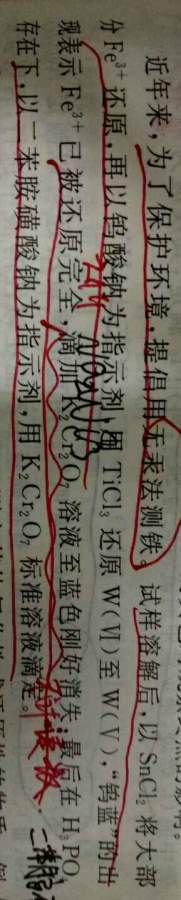 近年来,为了保护环境,提倡用无汞法测铁。试样溶解后,以 SnCl₂ 将大部
分 Fe³⁺ 还原,再以钨酸钠为指示剂,用 TiCl₃ 还原 W(Ⅵ)至 W(Ⅴ),“钨蓝”的出
现表示 Fe³⁺ 已被还原完全,滴加 K₂Cr₂O₇ 溶液至蓝色刚好消失,最后在 H₃PO₄
存在下,以二苯胺磺酸钠为指示剂,用 K₂Cr₂O₇ 标准溶液滴定。